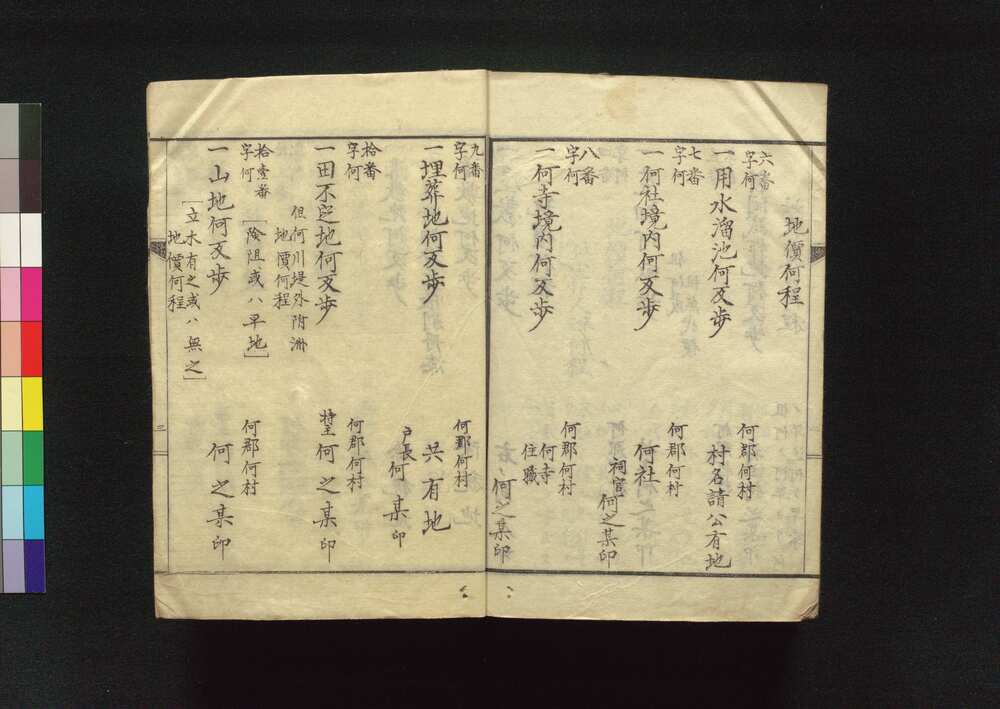 地價何程
六番
字何
一用水溜池何反歩
何郡何村
村名請公有地
七番
字何
一何社境内何反歩
何郡何村
何社
祠官
何之某印
八番
字何
一何寺境内何反歩
何郡何村
何寺
住職
何之某印
九番
字何
一埋葬地何反歩
何郡何村
共有地
戸長
何某印
拾番
字何
一田不定地何反歩
但何川堤外附洲
地價何程
何郡何村
持主
何之某印
拾壹番
字何
[険阻或ハ旱地]
一山地何反歩
[立木有之或ハ無之]
地價何程
何郡何村
何之某印
三